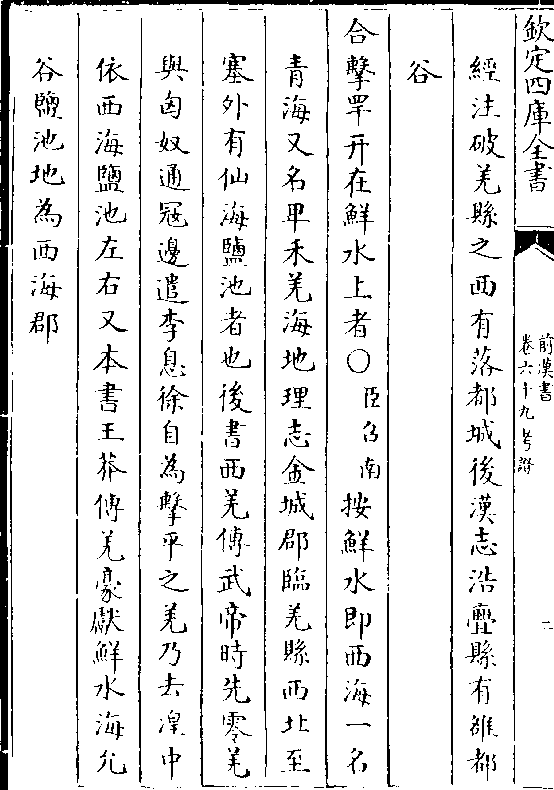 欽定四庫全書
前漢書
卷六十九考證
二
經注破羌縣之西有落都城後漢志浩亹縣有雒都
谷
合擊䍐幵在鮮水上者○臣召南按鮮水即西海一名
青海又名卑禾羌海地理志金城郡臨羌縣西北至
塞外有仙海鹽池者也後書西羌傳武帝時先零羌
與匈奴通冦邊遣李息徐自為擊平之羌乃去湟中
依西海鹽池左右又本書王莽傳羌豪獻鮮水海允
谷鹽池地為西海郡